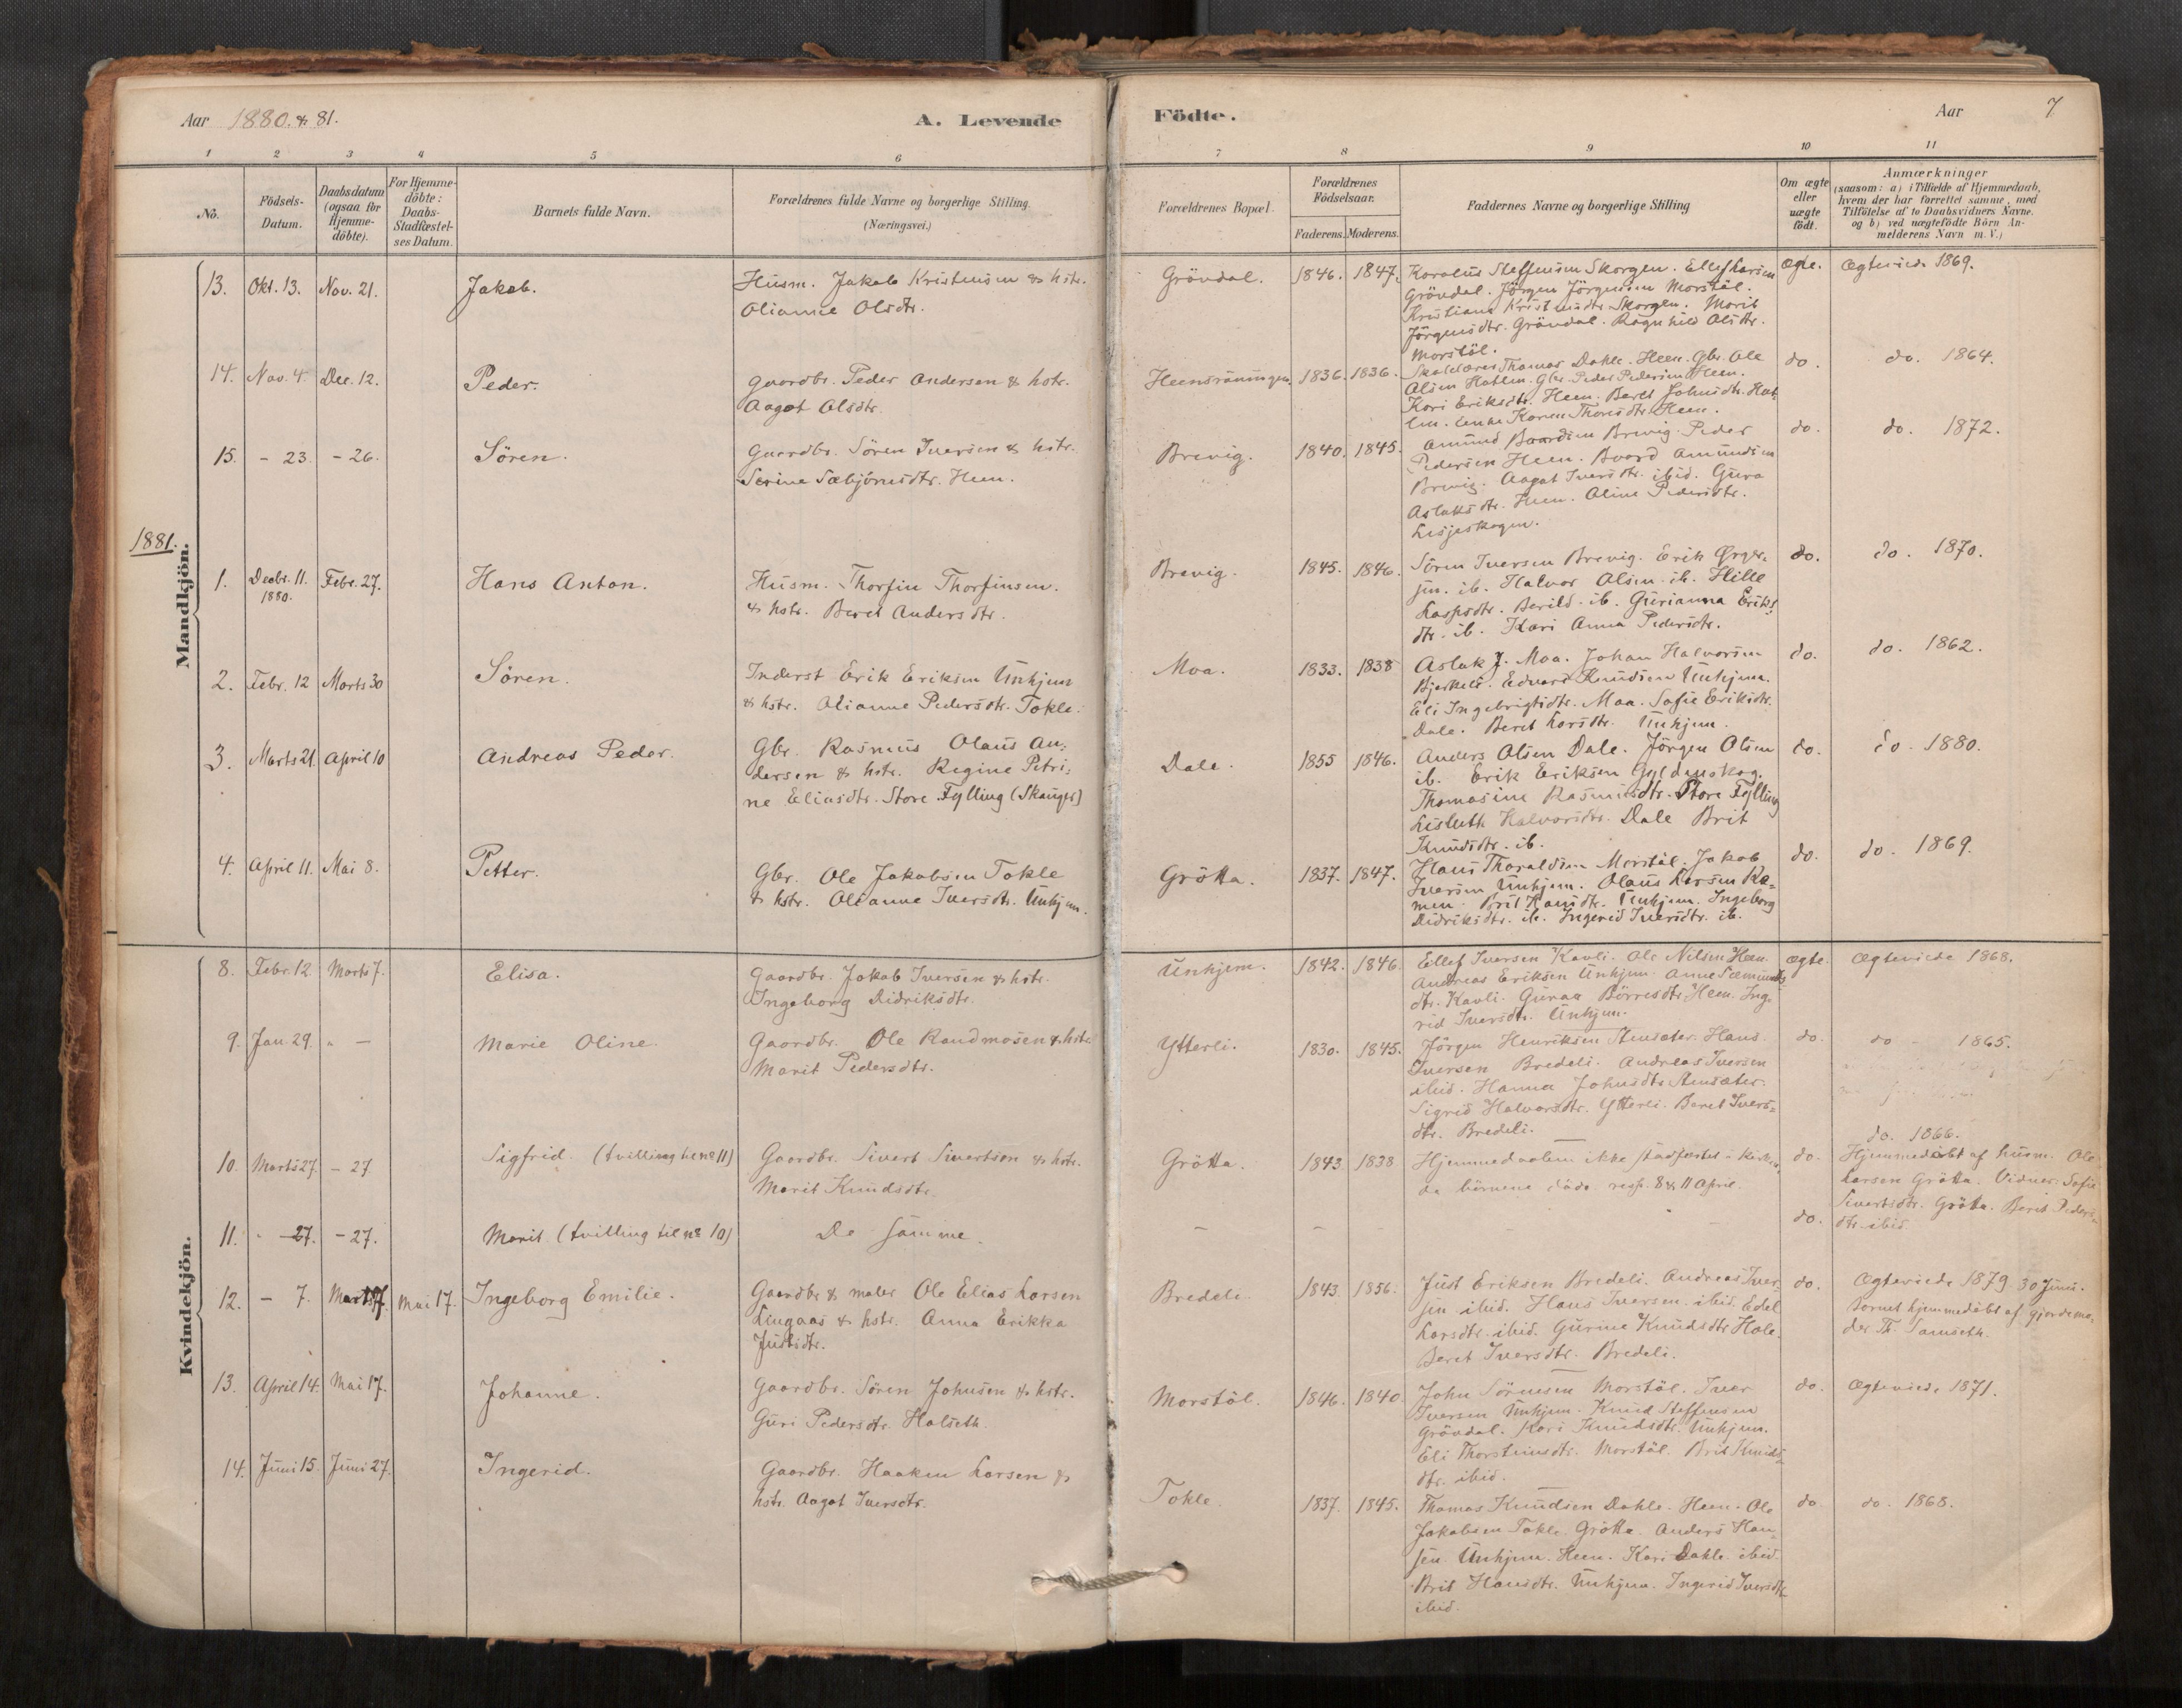 Aar 1880. & 81.
A. Levende
Födte.
Aar
7
1 2 3 4 5 6 7 8 9 10 11
No.
Födsels-Datum.
Daabsdatum (ogsaa for Hjemme-döbte).
For Hjemme-döbte: Daabs-Stadfæstel-ses Datum.
Barnets fulde Navn.
Forældrenes fulde Navne og borgerlige Stilling. (Næringsvei.)
Forældrenes Bopæl.
Forældrenes Födselsaar.
Faderens. Moderens.
Faddernes Navne og borgerlige Stilling
Om ægte eller uægte födt.
Anmærkninger
(saasom: a) i Tilfælde af Hjemmedaab,
hvem der har forrettet samme, med
Tilföielse af to Daabsvidners Navne.
og b) ved uægtefödte Börn An-
melderens Navn m. V.)
Mandkjön.
13. Okt. 13. Nov. 21. Jakob.
Husm. Jakob Kristensen & hstr.
Olianne Olsdtr.
Grövdal. 1846. 1847.
Karolus Steffensen Skorgen. Ellef Larsen
Grövdal. Jörgen Jörgensen Morstöl.
Kristiane Kristensdtr. Skorgen. Marit
Jörgensdtr. Grövdal. Ragnhild Olsdtr.
Morstöl.
Ægte. Ægteviede 1869.
14. Nov. 4. Dec. 12. Peder.
Gaardbr. Peder Andersen & hstr.
Aagot Olsdtr.
Heensrönningen 1836. 1836.
Skolelærer Thomas Dahle. Heen. Gbr. Ole
Olsen Hatlen. Gbr. Peder Pedersen Heen.
Kari Eriksdtr. Heen. Beret Johnsdtr. Hat-
len. Enke Karen Thoresdtr. Heen.
do. do. 1864.
15. - 23. - 26. Sören.
Gaardbr. Sören Iversen & hstr.
Serine Sæbjörnsdtr. Heen.
Brevig. 1840. 1845.
Amund Baardsen Brevig. Peder
Pedersen Heen. Baard Amundsen
Brevig. Aagot Iversdtr. ibid. Gura
Aslaksdtr. Heen. Aline Pedersdtr.
Lisjeskogen.
do. do. 1872.
1881.
1. Decbr. 11. 1880. Febr. 27. Hans Anton.
Husm. Thorfin Thorfinsen.
& hstr. Beret Andersdtr.
Brevig. 1845. 1846.
Sören Iversen Brevig. Erik Örger-
jen. ib. Halvor Olsen. ib. Hille
Laspsdtr. Berild. ib. Gurianna Eriks-
dtr. ib. Kari Anna Pedersdtr.
do. do. 1870.
2. Febr. 12 Marts 30 Sören.
Inderst Erik Eriksen Unhjem
& hstr. Olianne Pedersdtr. Tokle.
Moa. 1833. 1838
Aslak J. Moa. Johan Halvorsen
Bjerkeli. Edvard Knudsen Unhjem.
Eli Ingebrigtsdtr. Moa. Sofie Eriksdtr.
Dale. Beret Larsdtr. Unhjem.
do. do. 1862.
3. Marts 21. April 10 Andreas Peder.
Gbr. Rasmus Olaus An-
dersen & hstr. Regine Petri-
ne Eliasdtr. Store Fylling (Skauge)
Dale. 1855 1846.
Anders Olsen Dale. Jörgen Olsen
ib. Erik Eriksen Gyldenskog.
Thomasine Rasmusdtr. Store Fylling
Lisbeth Halvorsdtr. Dale Brit
Knudsdtr. ib.
do. do. 1880.
4. April 11. Mai 8. Petter.
Gbr. Ole Jakobsen Tokle
& hstr. Olianne Iversdtr. Unhjem.
Grötta. 1837. 1847.
Hans Tharaldsen Morstöl. Jakob
Iversen Unhjem. Olaus Larsen Ka-
men. Brit Hansdtr. Unhjem. Ingeborg
Didriksdtr. ib. Ingerid Iversdtr. ib.
do. do. 1869.
Kvindekjön.
8. Febr. 12. Marts 7. Elisa.
Gaardbr. Jakob Iversen & hstr.
Ingeborg Didriksdtr.
Unhjem. 1842. 1846.
Ellef Iversen Kavli. Ole Nilsen Heen.
Andreas Eriksen Unhjem. Anne Sæmunds-
dtr. Kavli. Guraa Börresdtr. Heen. Inge-
rid Iversdtr. Unhjem.
ægte. Ægteviede 1868.
9. Jan. 29. " - Marie Oline.
Gaardbr. Ole Randmosen & hstr.
Marit Pedersdtr.
Ytterli. 1830. 1845.
Jörgen Henriksen Stensæter. Hans
Iversen Bredeli. Andreas Iversen
ibid. Hanna Johnsdtr. Stensæter.
Sigrid Halvorsdtr. Ytterli. Beret Ivers-
dtr. Bredeli.
do. do - 1865.
10. Marts 27. - 27 Sigfrid. (tvilling til no 11)
Gaardbr. Sivert Sivertsen & hstr.
Marit Knudsdtr.
Grötta. 1843. 1838
Hjemmedaaben ikke stadfæstet i kirken,
da börnene döde resp. 8 & 11 April.
do. do. 1866.
Hjemmedöbt af husm. Ole
Larsen Grötta. Vidner: Sofie
Sivertsdtr. Grötta. Berit Peders-
dtr. ibid.
11. - 27. - 27. Marit. (tvilling til no 10)
De samme.
do.
12. - 7. Marts 7. Mai 17. Ingeborg Emilie.
Gaardbr. & maler Ole Elias Larsen
Lengaas & hstr. Anna Erikka
Justsdtr.
Bredeli. 1843. 1856.
Just Eriksen Bredeli. Andreas Iver-
sen ibid. Hans Iversen. ibid. Edel
Larsdtr. ibid. Gurine Knudsdtr. Hole.
Beret Iversdtr. Bredeli.
do. Ægteviede 1879 30 Juni.
Barnet hjemmedöbt af gjordemo-
der Th. Samseth.
13. April 14. Mai 17. Johanne.
Gaardbr. Sören Johnsen & hstr.
Guri Pedersdtr. Halseth.
Morstöl. 1846. 1840.
John Sörensen Morstöl. Iver
Iversen Unhjem. Knud Steffensen
Grövdal. Kari Knudsdtr. Unhjem.
Eli Thorsteinsdtr. Morstöl. Brit Knuds-
dtr. ibid.
do. Ægteviede 1871.
14. Juni 15. Juni 27. Ingerid.
Gaardbr. Haaken Larsen &
hstr. Aagot Iversdtr.
Tokle. 1837. 1845.
Thomas Knudsen Dahle. Heen. Ole
Jakobsen Tokle. Grötta. Anders Han-
sen Unhjem. Heen. Kari Dahle. ibid.
Brit Hansdtr. Unhjem. Ingerid Iversdtr.
ibid.
do do. 1868.